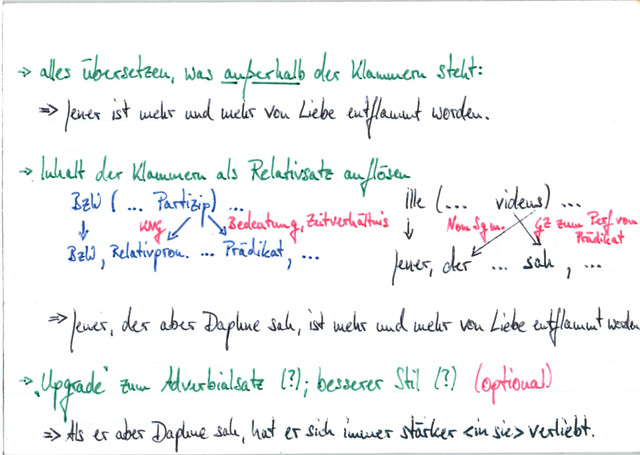 → alles übersetzen, was außerhalb der Klammern steht:
⇒ Jener ist mehr und mehr von Liebe entflammt worden.
→ Inhalt der Klammern als Relativsatz auflösen
BzW ( ... Partizip) ... Ille (... videns) ...
KNG Bedeutung, Zeitverhältnis Nom Sg m. GZ zum Perf. vom Prädikat
BzW, Relativpron. ... Prädikat, ... Jener, der ... sah, ...
⇒ Jener, der aber Daphne sah, ist mehr und mehr von Liebe entflammt worden
→ "Upgrade" zum Adverbialsatz (?); besserer Stil (?) (optional)
⇒ Als er aber Daphne sah, hat er sich immer stärker <in sie> verliebt.